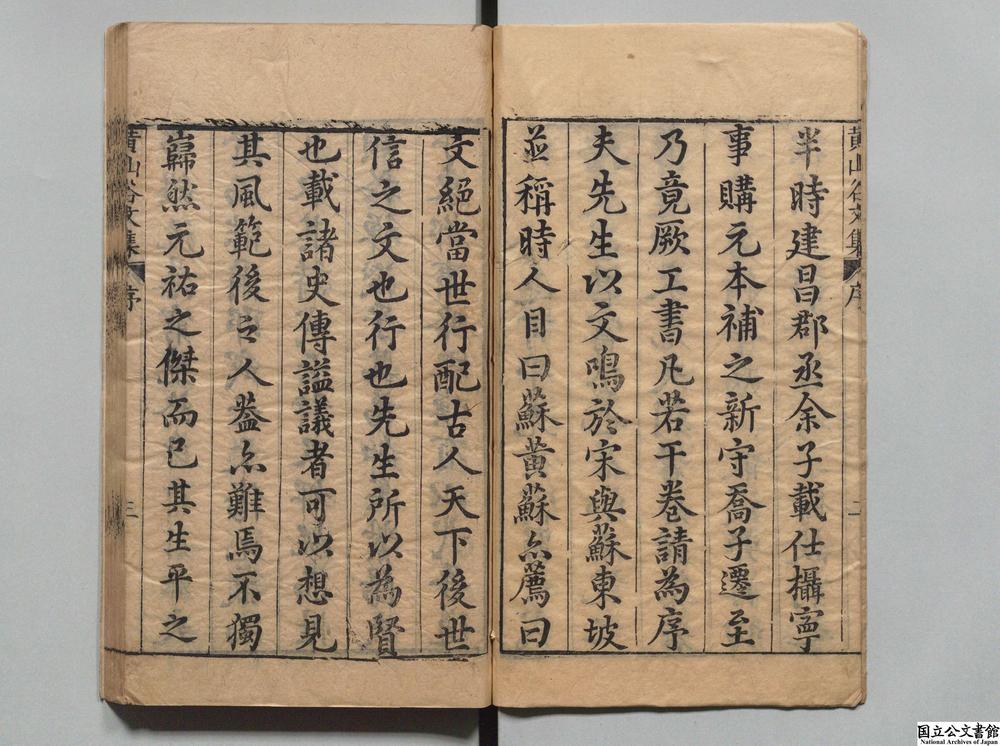 黃山谷文集
序
二
半時建昌郡丞余子載仕攝寧
事購元本補之新守喬子遷至
乃竟厥工書凡若干卷請為序
夫先生以文鳴於宋與蘇東坡
並稱時人目曰蘇黃蘇亦薦曰
文絕當世行配古人天下後世
信之文也行也先生所以為賢
也載諸史傳謚議者可以想見
其風範後之人蓋亦難焉不獨
巋然元祐之傑而已其生平之
黃山谷文集
序
三
国立公文書館
National Archives of Japan